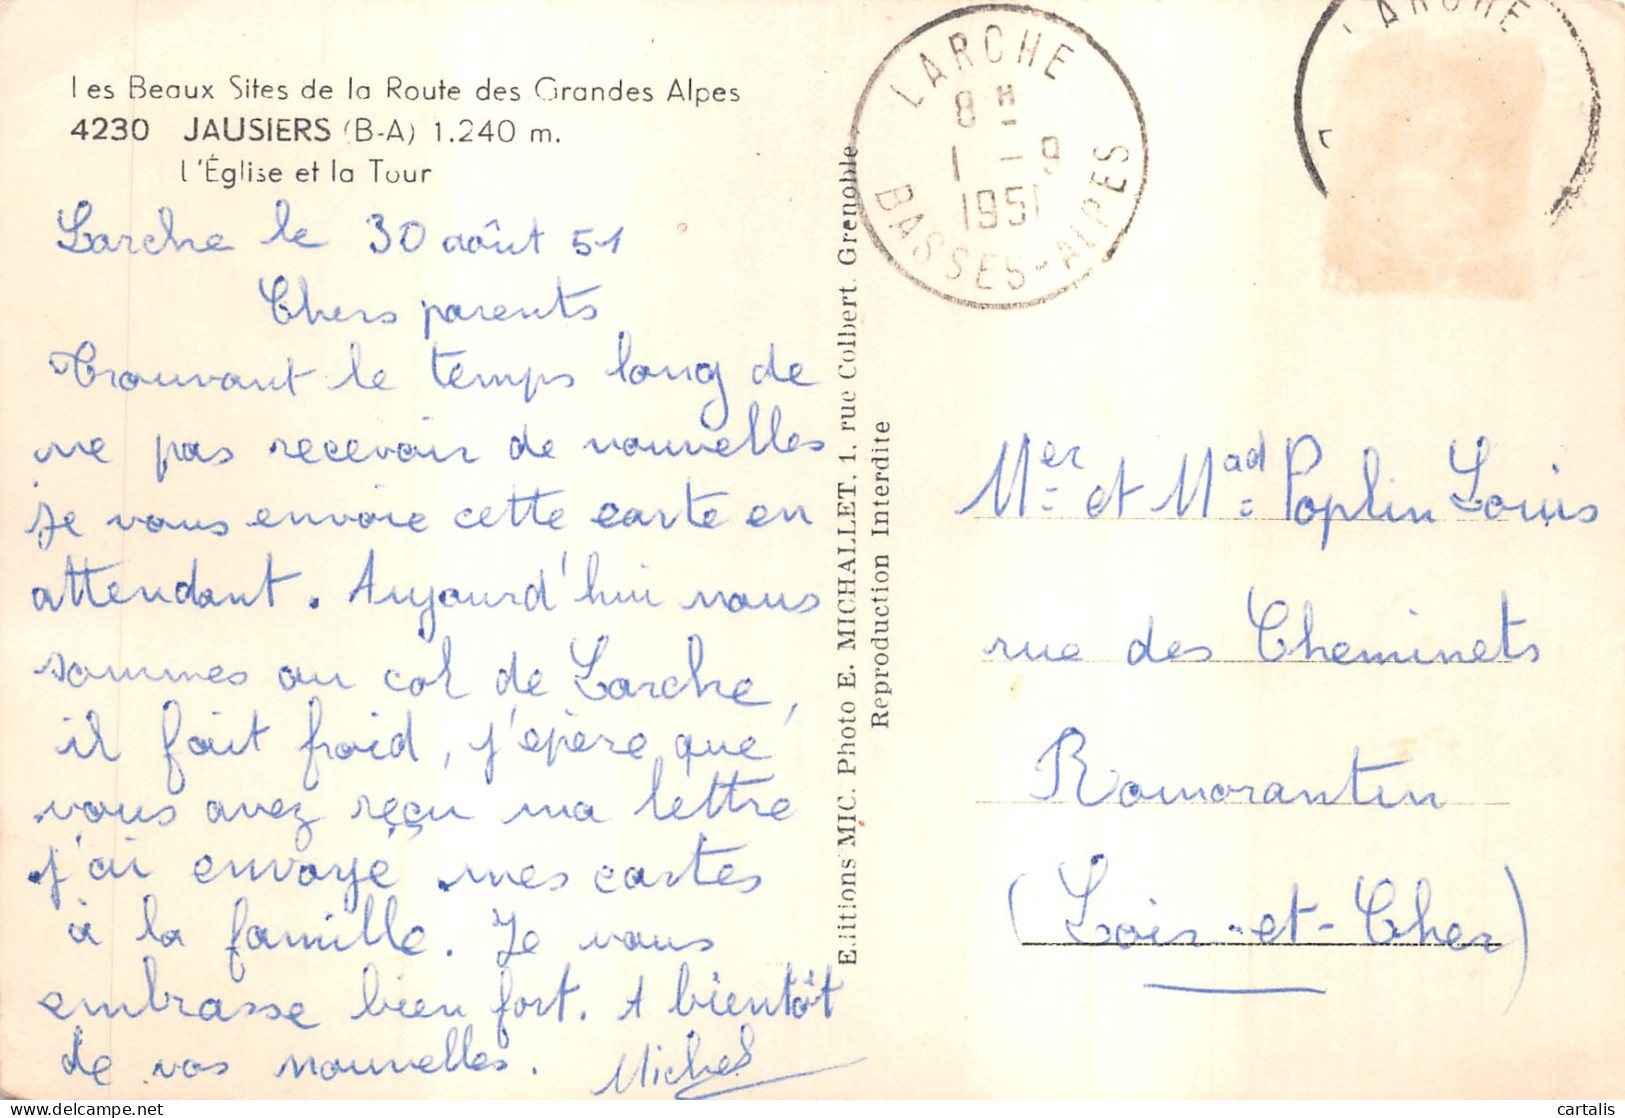 Les Beaux Sites de la Route des Grandes Alpes
4230 JAUSIERS (B-A) 1.240 m.
L'Église et la Tour
Larche le 30 août 51
Chers parents
Trouvant le temps long de
ne pas recevoir de nouvelles
je vous envoie cette carte en
attendant. Aujourd'hui nous
sommes au col de Larche,
il fait froid, j'epère que
vous avez reçu ma lettre
j'ai envoyé mes cartes
à la famille. Je vous
embrasse bien fort. A bientôt
de vos nouvelles. Michel
Editions MIC. Photo E. MICHALLET, 1. rue Colbert. Grenoble
Reproduction Interdite
LARCHE
8 H
1 - 9
1951
BASSES-ALPES
LARCHE
Mer et Mad Poplin Louis
rue des Cheminets
Romorantin
(Loir-et-Cher)
cartalis
delcampe.net